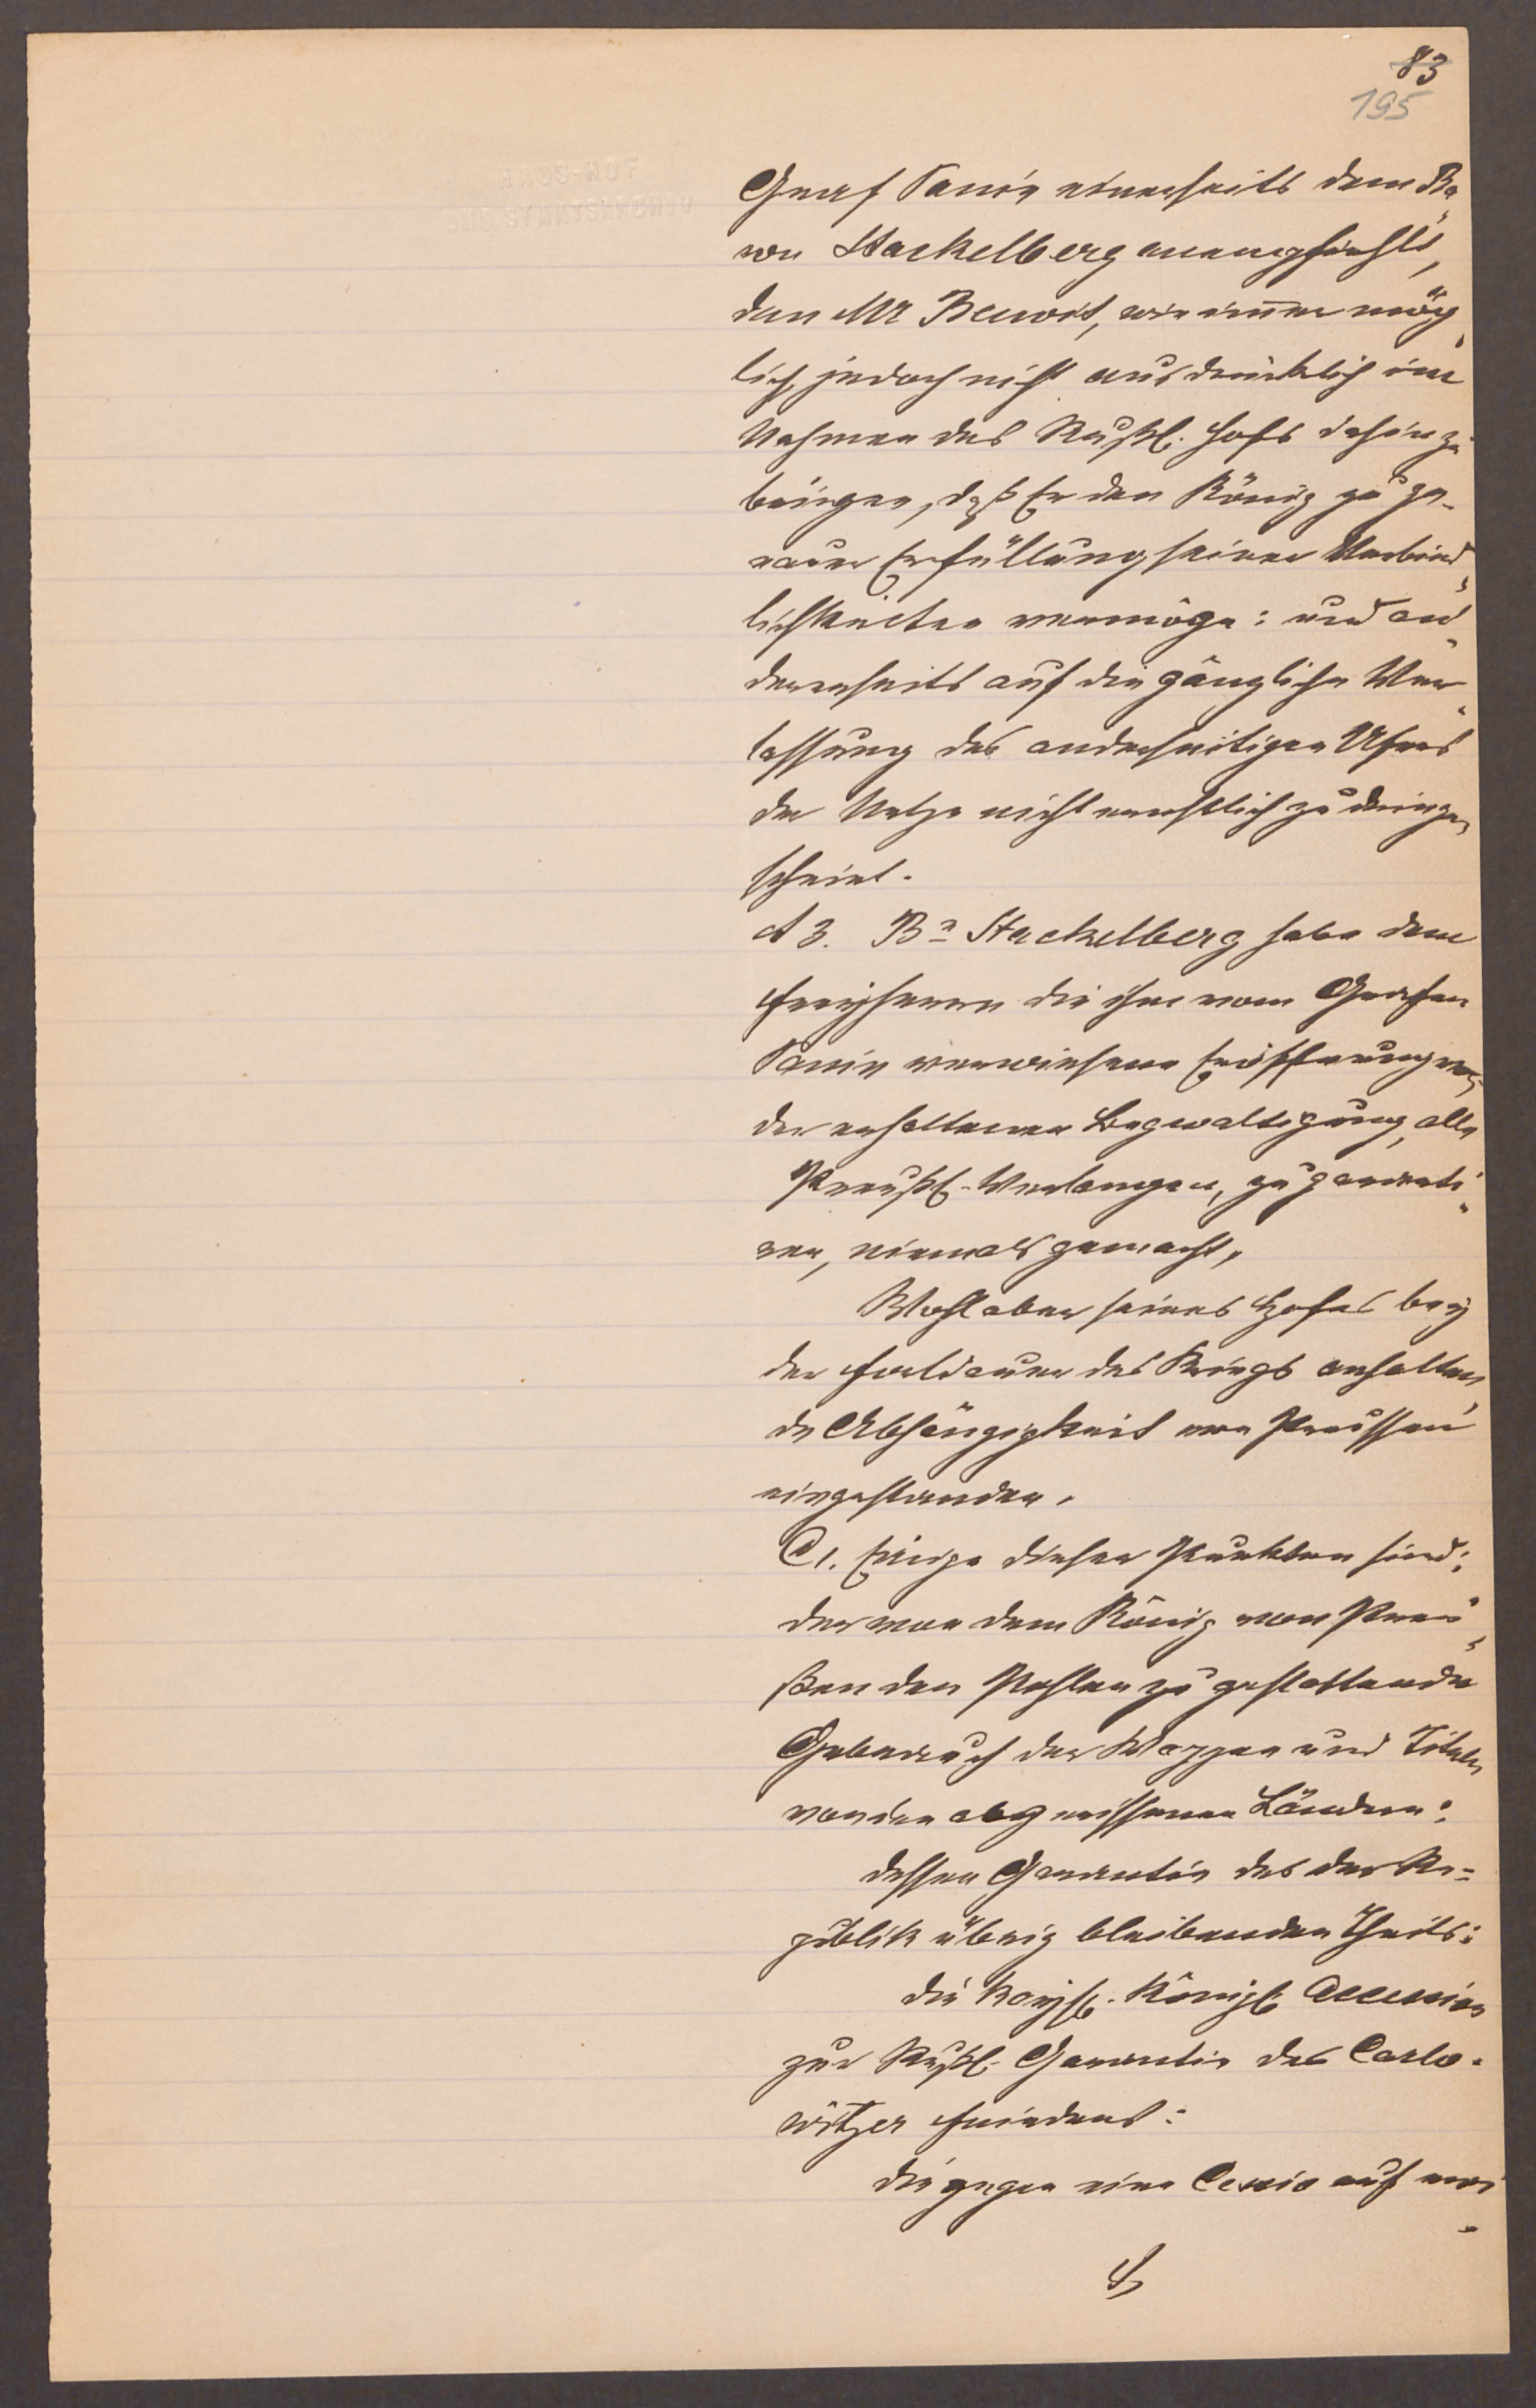 83
195
Graf Panin einerseits dem Ba„
ron Stackelberg anempfiehlt,
den Mr Benoit, wie immer mög„
lich, jedoch nicht ausdrücklich im
Nahmen des Rußl. Hofs dahin zu
bringen, daß Er den König zu ge-
nauer Erfüllung seiner Verbind„
lichkeiten vermöge: und an„
dererseits auf die gänzliche Ver„
lassung des anderseitigen Ufers
der Netze nicht ernstlich zu dringen
scheint.
A 3. Bn Stackelberg habe dem
Freyherrn die ihm vom Grafen
Panin verwiesene Eröffnung von
der erhaltenen Begwaltigung, alle
Preußl. Verlangen, zu garanti„
ren, niemals gemacht,
Wohl aber seines Hofes bey
der Fortdauer des Kriegs anhalten„
de Abhängigkeit von Preussen
eingestanden.
C 1. Einige dieser Punkten sind:
der von dem König von Preu„
ßen den Pohlen zu gestattende
Gebrauch der Wappen und Titeln
von den abgerissenen Ländern:
dessen Garantie des der Re=
publik übrig bleibenden Theils:
die Kaysl. Königl. Accession
zur Rußl. Garantie des Carlo-
witzer Friedens:
die gegen eine Cessio auf